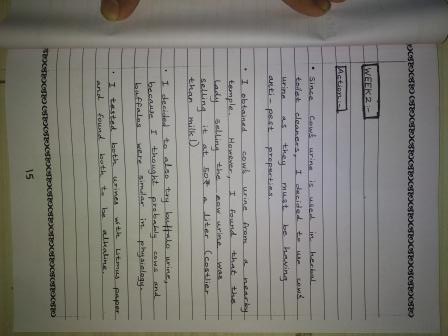 WEEK 2 :-
Action :-
• Since cow's urine is used in herbal
toilet cleaners, I decided to use cow's
urine as they must be having
anti-pest properties.
• I obtained cow's urine from a nearby
temple. However, I found that the
lady selling the cow urine was
selling it at 50₹ a liter (costlier
than milk!)
• I decided to also try buffalo urine
because I thought probably cows and
buffalos were similar in physiology.
• I tested both urines with litmus paper
and found both to be alkaline.
15